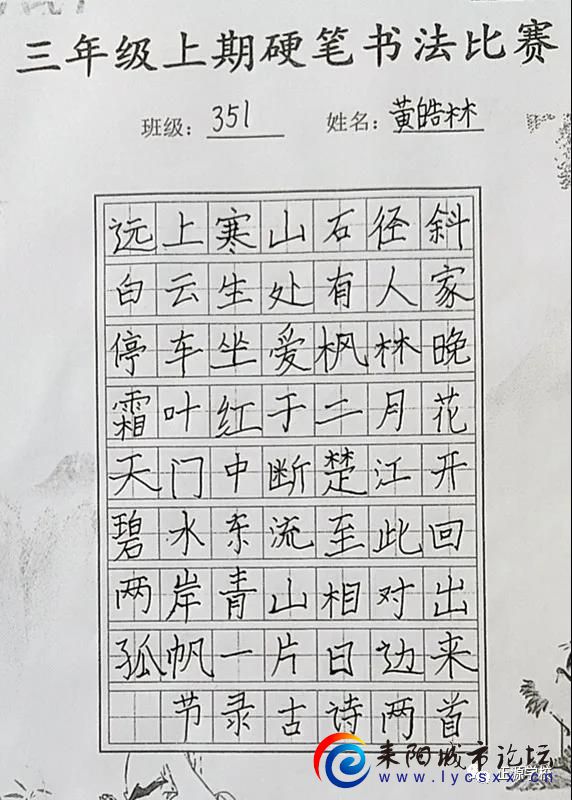 三年级上期硬笔书法比赛
班级: 351 姓名: 黄皓林
远上寒山石径斜
白云生处有人家
停车坐爱枫林晚
霜叶红于二月花
天门中断楚江开
碧水东流至此回
两岸青山相对出
孤帆一片日边来
节录古诗两首
耒阳城市论坛
www.lycsxx.cn
正源学校